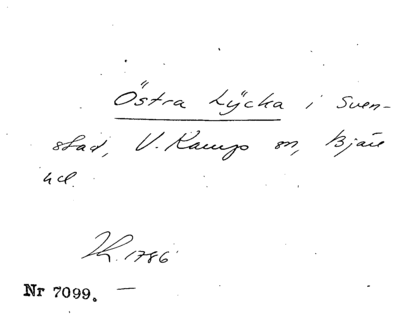 Östra Lÿcka i Sven-
stad, V. Karups sn, Bjäre
hd.
Kh. 1786
Nr 7099. —